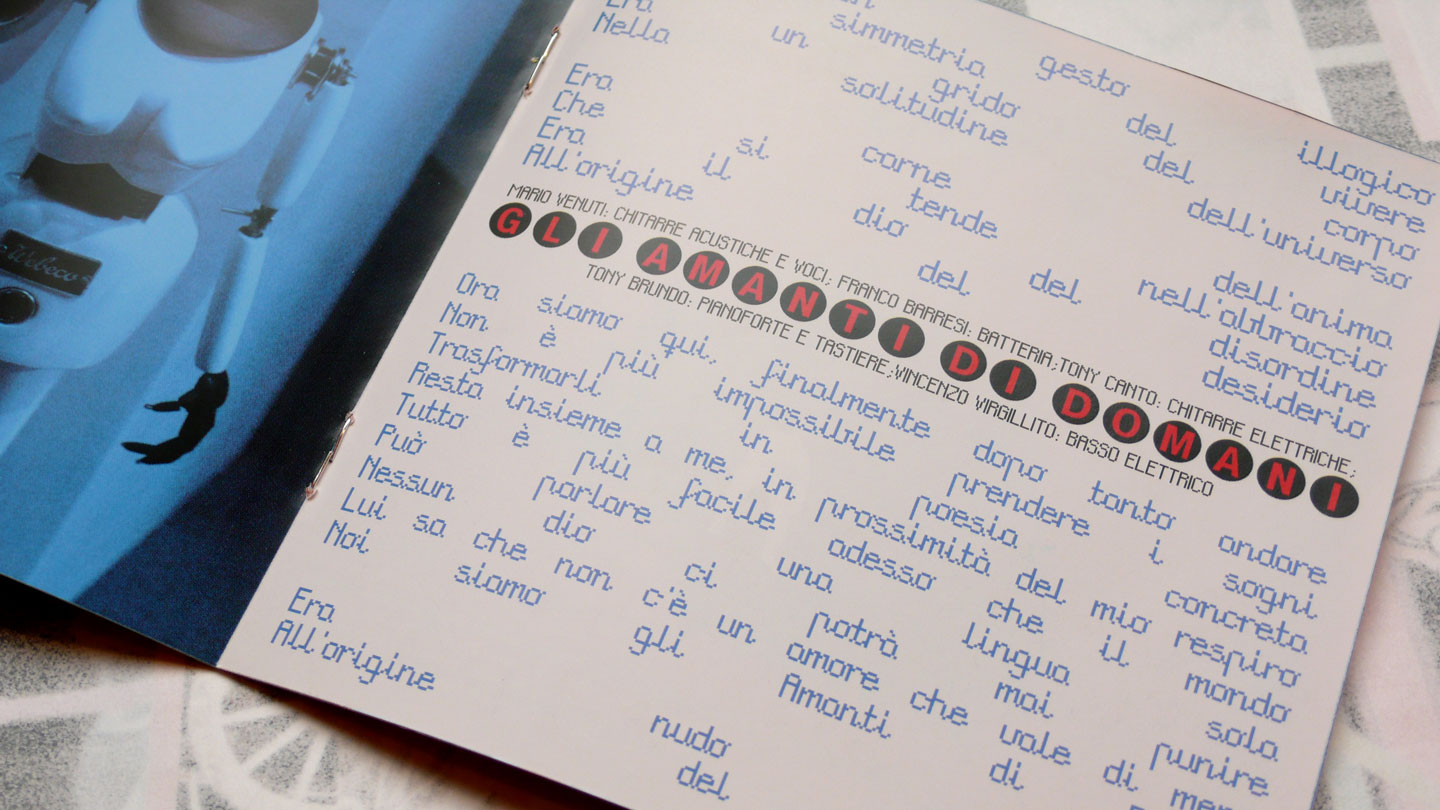 un gesto illogico
simmetria del vivere
Era un grido del corpo
Nella solitudine dell'universo
Era carne dell'anima
Che si tende nell'abbraccio
Era il dio del disordine
All'origine del desiderio
MARIO VENUTI: CHITARRE ACUSTICHE E VOCI; FRANCO BARRESI: BATTERIA;TONY CANTO: CHITARRE ELETTRICHE;
GLI AMANTI DI DOMANI
TONY BRUNDO: PIANOFORTE E TASTIERE;VINCENZO VIRGILLITO: BASSO ELETTRICO
Ora siamo qui, finalmente dopo tanto andare
Non è più impossibile prendere i sogni
Trasformarli in poesia concreta
Resta insieme a me, in prossimità del mio respiro
Tutto è più facile adesso che il mondo
Può parlare una lingua sola
Nessun dio ci potrà mai punire
Lui sa che non c'è un amore che vale di men
Noi siamo gli Amanti di
Era nudo
All'origine del